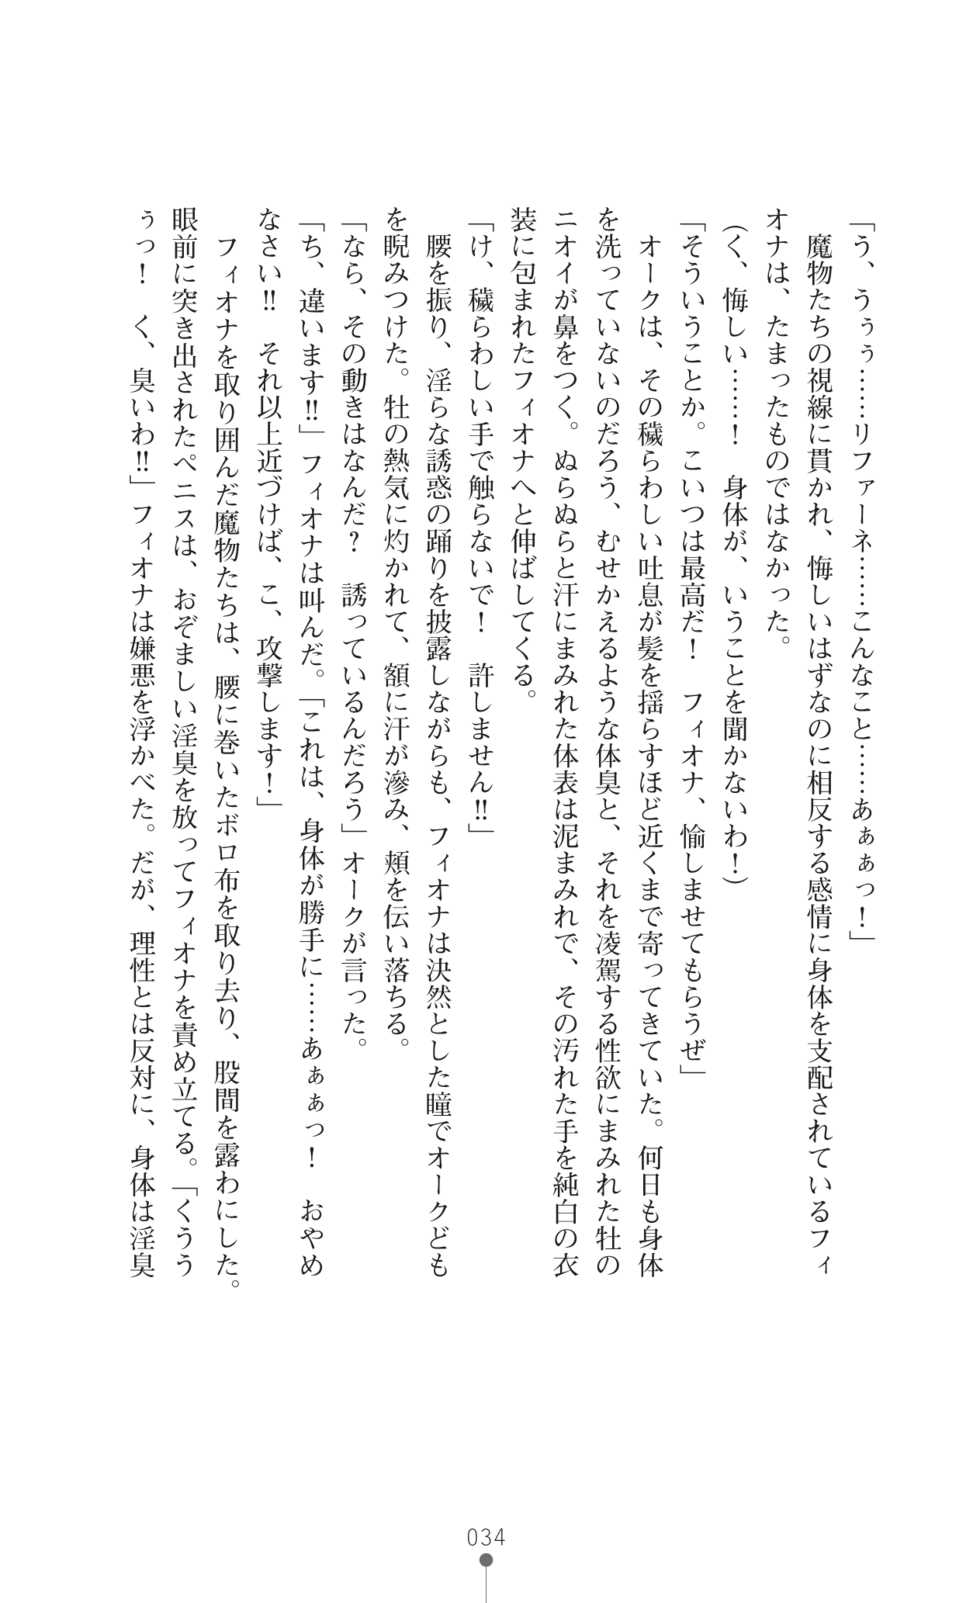 「う、うぅぅ……リファーネ……こんなこと……あぁぁっ！」
　魔物たちの視線に貫かれ、悔しいはずなのに相反する感情に身体を支配されているフィ
オナは、たまったものではなかった。
（く、悔しい……！　身体が、いうことを聞かないわ！）
「そういうことか。こいつは最高だ！　フィオナ、愉しませてもらうぜ」
　オークは、その穢らわしい吐息が髪を揺らすほど近くまで寄ってきていた。何日も身体
を洗っていないのだろう、むせかえるような体臭と、それを凌駕する性欲にまみれた牡の
ニオイが鼻をつく。ぬらぬらと汗にまみれた体表は泥まみれで、その汚れた手を純白の衣
装に包まれたフィオナへと伸ばしてくる。
「け、穢らわしい手で触らないで！　許しません‼」
　腰を振り、淫らな誘惑の踊りを披露しながらも、フィオナは決然とした瞳でオークども
を睨みつけた。牡の熱気に灼かれて、額に汗が滲み、頬を伝い落ちる。
「なら、その動きはなんだ？　誘っているんだろう」オークが言った。
「ち、違います‼」フィオナは叫んだ。「これは、身体が勝手に……あぁぁっ！　おやめ
なさい‼　それ以上近づけば、こ、攻撃します！」
　フィオナを取り囲んだ魔物たちは、腰に巻いたボロ布を取り去り、股間を露わにした。
眼前に突き出されたペニスは、おぞましい淫臭を放ってフィオナを責め立てる。「くうう
ぅっ！　く、臭いわ‼」フィオナは嫌悪を浮かべた。だが、理性とは反対に、身体は淫臭
034